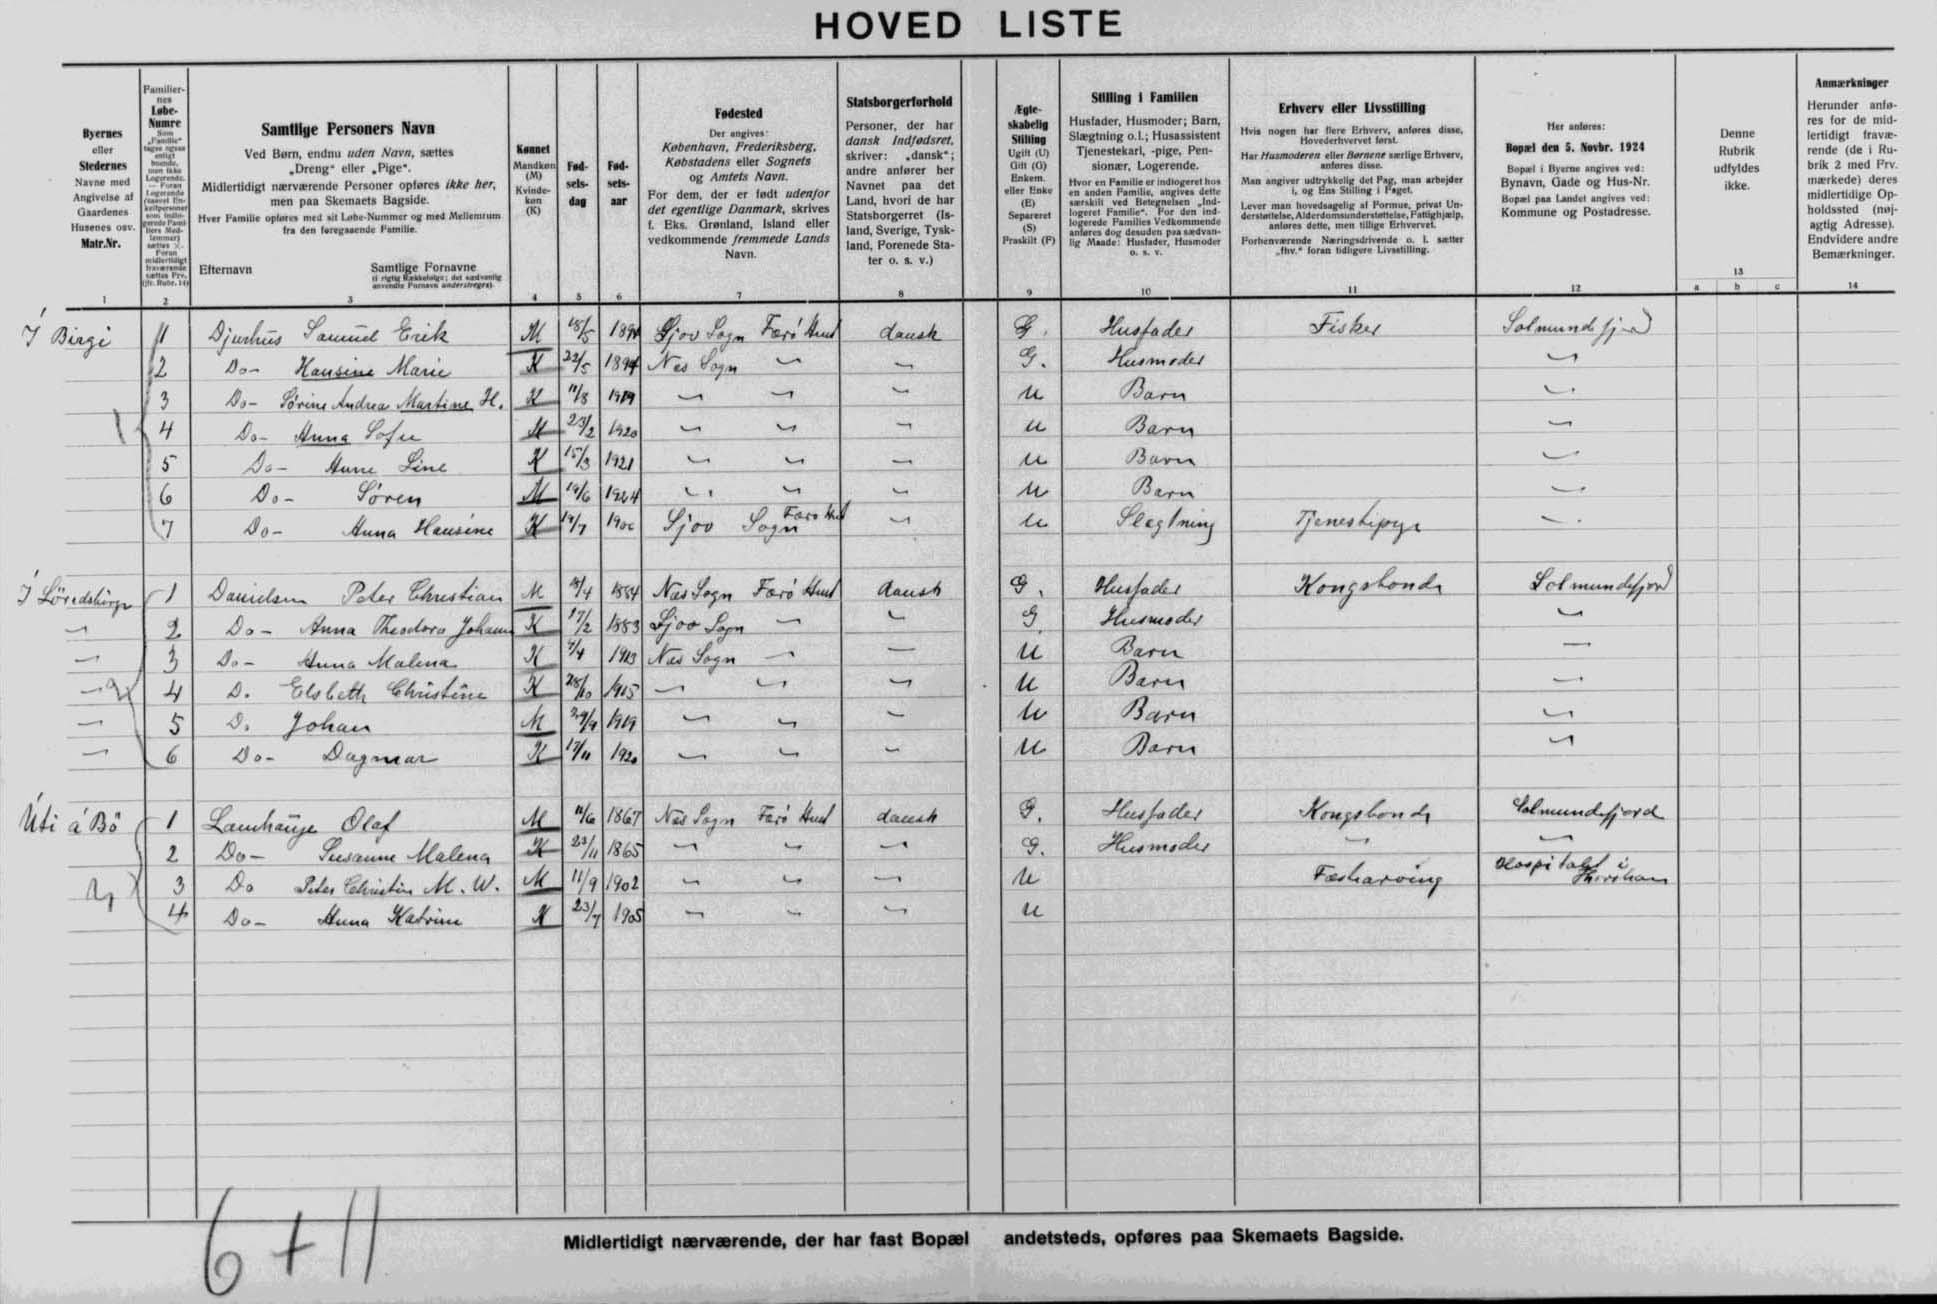 HOVED LISTE
Byernes
eller
Stedernes
Navne med
Angivelse af
Gaardenes
Husenes osv.
Matr.Nr.
1
Familier-
nes
Løbe-
Numre
Som
„Familie"
tages ogsaa
enligt
boende,
men ikke
Logerende.
2
Samtlige Personers Navn
Ved Børn, endnu uden Navn, sættes
„Dreng" eller „Pige".
Midlertidigt nærværende Personer opføres ikke her,
men paa Skemaets Bagside.
Hver Familie opføres med sit Løbe-Nummer og med Mellemrum
fra den foregaaende Familie.
Efternavn Samtlige Fornavne
(i rigtig Rækkefølge; det sædvanlig
anvendte Fornavn understreges).
3
Kønnet
Mandkøn
(M)
Kvinde-
køn
(K)
4
Fød-
sels-
dag
5
Fød-
sels-
aar
6
Fødested
Der angives:
København, Frederiksberg,
Købstadens eller Sognets
og Amtets Navn.
For dem, der er født udenfor
det egentlige Danmark, skrives
f. Eks. Grønland, Island eller
vedkommende fremmede Lands
Navn.
7
Statsborgerforhold
Personer, der har
dansk Indfødsret,
skriver: „dansk";
andre anfører her
Navnet paa det
Land, hvori de har
Statsborgerret (Is-
land, Sverige, Tysk-
land, Forenede Sta-
ter o. s. v.)
8
Ægte-
skabelig
Stilling
Ugift (U)
Gift (G)
Enkem.
eller Enke
(E)
Separeret
(S)
Fraskilt (F)
9
Stilling i Familien
Husfader, Husmoder; Barn,
Slægtning o.l.; Husassistent
Tjenestekarl, -pige, Pen-
sionær, Logerende.
Hvor en Familie er indlogeret hos
en anden Familie, angives dette
særskilt ved Betegnelsen „Ind-
logeret Familie". For den ind-
logerede Families Vedkommende
anføres dog desuden paa sædvan-
lig Maade: Husfader, Husmoder
o. s. v.
10
Erhverv eller Livsstilling
Hvis nogen har flere Erhverv, anføres disse,
Hovederhvervet først.
Har Husmoderen eller Børnene særlige Erhverv,
anføres disse.
Man angiver udtrykkelig det Fag, man arbejder
i, og Ens Stilling i Faget.
Lever man hovedsagelig af Formue, privat Un-
derstøttelse, Alderdomsunderstøttelse, Fattighjælp,
anføres dette, men tillige Erhvervet.
Forhenværende Næringsdrivende o. l. sætter
„fhv." foran tidligere Livsstilling.
11
Her anføres:
Bopæl den 5. Novbr. 1924
Bopæl i Byerne angives ved:
Bynavn, Gade og Hus-Nr.
Bopæl paa Landet angives ved:
Kommune og Postadresse.
12
Denne
Rubrik
udfyldes
ikke.
13
a b c
Anmærkninger
Herunder anfø-
res for de mid-
lertidigt fravæ-
rende (de i Ru-
brik 2 med Frv.
mærkede) deres
midlertidige Op-
holdssted (nøj-
agtig Adresse).
Endvidere andre
Bemærkninger.
14
Í Birgi 1 Djurhus Samuel Erik M 18/5 Sjov Sogn Færö Amt dansk G. Husfader Fisker Solmundefjord
2 Do- Hansine Marie K 22/5 1894 Nes Sogn " " G. Husmoder "
3 Do- Sörine Andrea Martine H. K 11/8 1919 " " " U Barn "
4 Do- Anna Sofie M 23/2 1920 " " " U Barn "
5 Do- Anne Line K 15/3 1921 " " " U Barn "
6 Do- Sören M 19/6 1924 " " " U Barn "
7 Do- Anna Hansine K 19/7 1900 Sjov Sogn Færö Amt " U Slegtning Tjenestepige "
1 Danielsen Peter Christian M 1884 Nes Sogn Færö Amt dansk G. Husfader Kongsbonde Solmundefjord
" 2 Do- Anna Theodora Johanne K 17/2 1883 Sjov Sogn " " G Husmoder "
" 3 Do- Anna Malena K 1913 Nes Sogn " " U Barn "
" 4 D. Elsbeth Christine K 28/10 1915 " " " U Barn "
" 5 D. Johan M 29/9 1919 " " " U Barn "
" 6 Do- Dagmar K 17/11 1920 " " " U Barn "
Úti á Bö 1 Lamhauge Olaf M 11/6 1867 Nes Sogn Færö Amt dansk G. Husfader Kongsbonde Solmundefjord
2 Do- Susanne Malena K 23/11 1865 " " " G. Husmoder " "
3 Do Peter Christin M. W. M 11/9 1902 " " " U Hospitalet i Thorshavn
4 Do- Anna Katrine K 23/7 1905 " " " U
6 + 11
Midlertidigt nærværende, der har fast Bopæl andetsteds, opføres paa Skemaets Bagside.